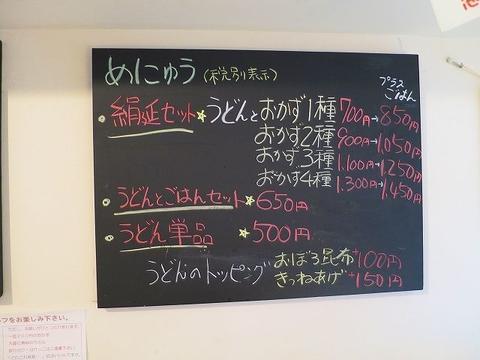 めにゅう (税別表示)
プラス
ごはん
絹延セット★うどんとおかず1種 700円→850円
おかず2種 900円→1,050円
おかず3種 1,100円→1,250円
おかず4種 1,300円→1,450円
うどんとごはんセット★650円
うどん単品 ★500円
うどんのトッピング おぼろ昆布+100円
きつねあげ+150円
フをお楽しみ下さい。